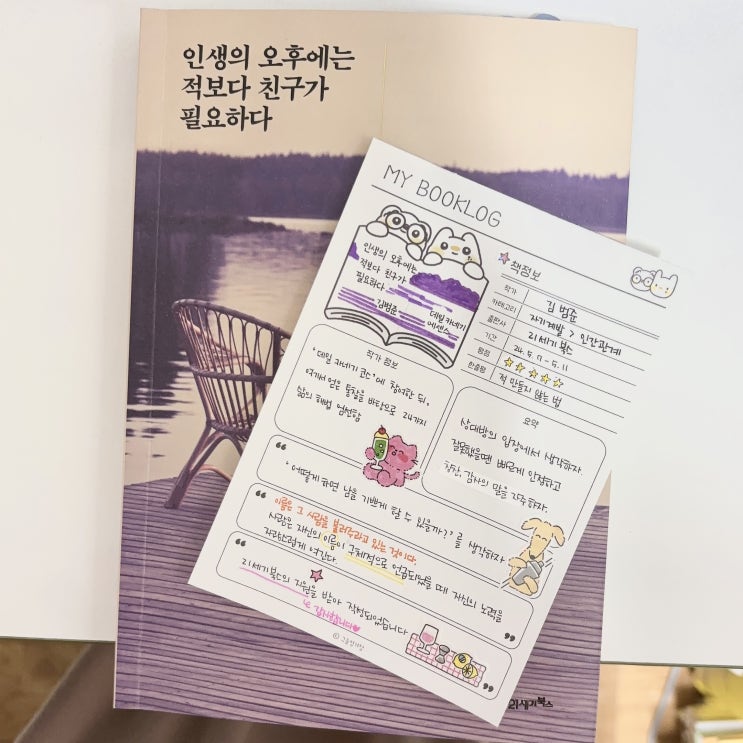 인생의 오후에는
적보다 친구가
필요하다
MY BOOKLOG
인생의 오후에는
적보다 친구가
필요하다
김범준
데일 카네기
에센스
책정보
작가 김범준
카테고리 자기계발 > 인간관계
출판사 21세기 북스
기간 24. 5. 7 - 5. 11
평점 ☆☆☆☆☆
한줄평 적 만들지 않는 법
작가 정보
'데일 카네기 코스'에 참여한 뒤,
여기서 얻은 통찰을 바탕으로 24가지
삶의 해법 엄선함
요약
상대방의 입장에서 생각하자
잘못했을땐 빠르게 인정하고
칭찬, 감사의 말을 자주하자.
“
'어떻게 하면 남을 기쁘게 할 수 있을까?'를 생각하자
“
이름은 그 사람을 불러주라고 있는 것이다.
사람은 자신의 이름이 구체적으로 언급되었을 때 자신의 노력을
자랑스럽게 여긴다.
”
“
21세기 북스의 지원을 받아 작성되었습니다
감사합니다♥
”
21세기북스